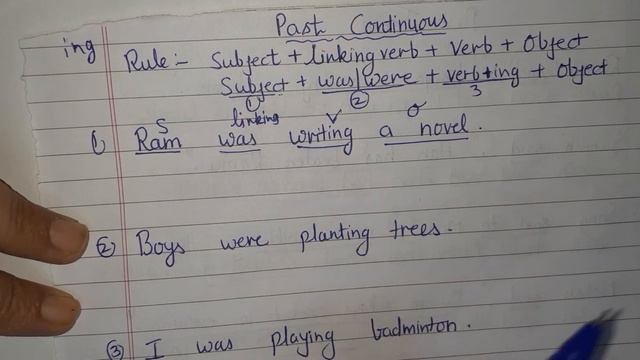 Past Continuous
ing
Rule:- Subject + linking verb + Verb + Object
Subject + was/were + verb+ing + Object
① ② 3
S linking V O
1) Ram was writing a novel.
② Boys were planting trees.
③ I was playing badminton.